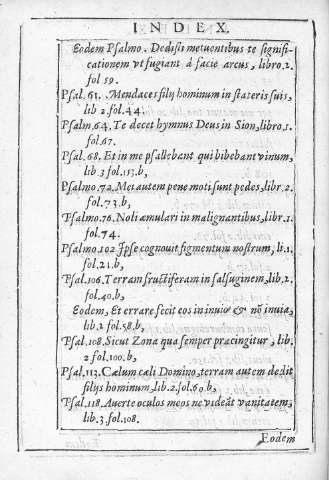 INDEX.
Eodem Psalmo. Dedisti metuentibus te signifi-
cationem vt fugiant à facie arcus, libro.2.
fol 59.
Psal.61. Mendaces filij hominum in stateris suis,
lib 2.fol.44.
Psalm.64. Te decet hymnus Deus in Sion, libro 1.
fol.67.
Psal.68. Et in me psallebant qui bibebant vinum,
lib 3 fol.153.b,
Psalmo.72. Mei autem pene moti sunt pedes, libr.2.
fol.73.b,
Psalmo.76. Noli æmulari in malignantibus, libr.1.
fol.74.
Psalmo.102. Ipse cognouit figmentum nostrum, li.1.
fol.21.b,
Psal.106. Terram fructiferam in salsuginem, lib.2.
fol.40.b,
Eodem, Et errare fecit eos in inuio & nõ in uia,
lib.2 fol.58.b,
Psal.108. Sicut Zona qua semper præcingitur, lib.
2 fol.100.b,
Psal.113. Cælum cæli Domino, terram autem dedit
filijs hominum, lib.2.fol.69.b,
Psal.118. Auerte oculos meos ne videãt vanitatem,
lib.3.fol.108.
Eodem